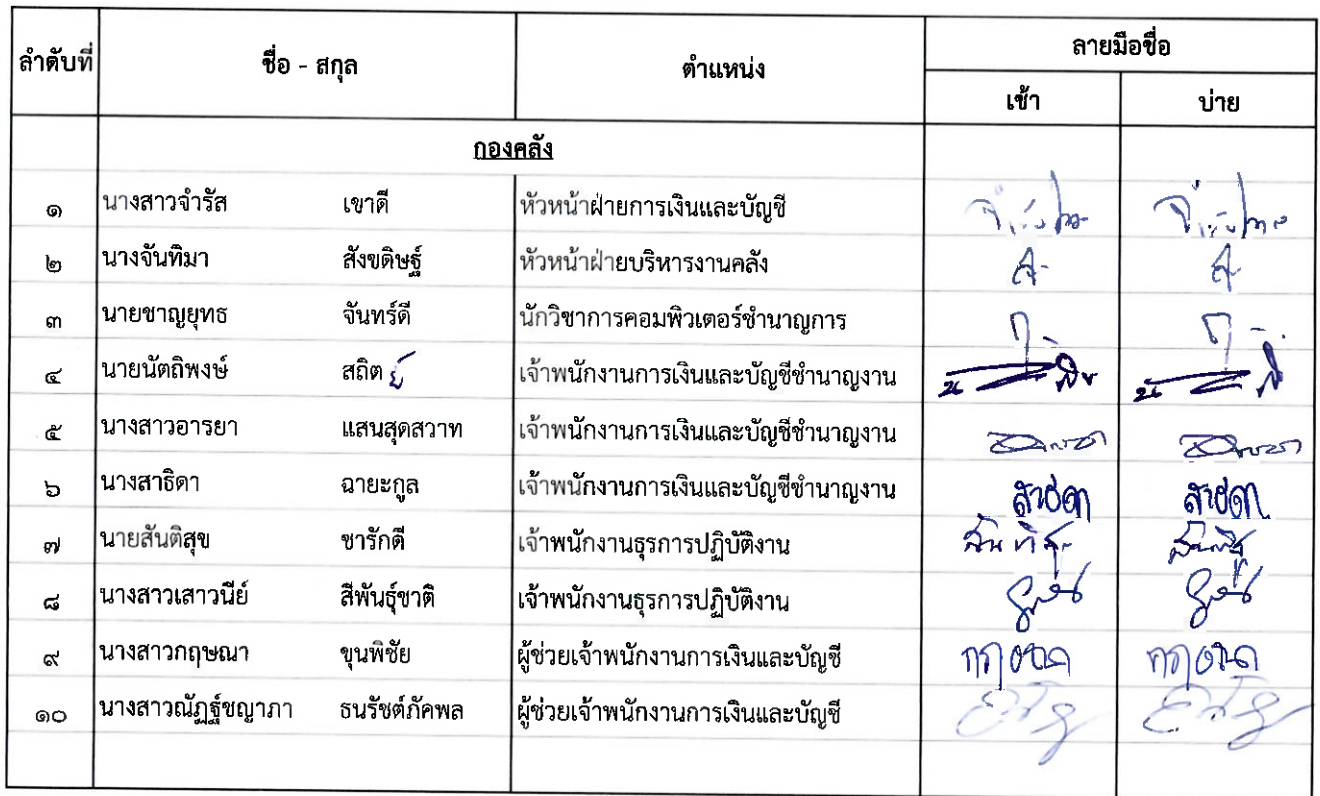 ลำดับที่ ชื่อ - สกุล ตำแหน่ง ลายมือชื่อ
เช้า บ่าย
กองคลัง
๑ นางสาวจำรัส เขาดี หัวหน้าฝ่ายการเงินและบัญชี
๒ นางจันทิมา สังขดิษฐ์ หัวหน้าฝ่ายบริหารงานคลัง
๓ นายชาญยุทธ จันทร์ดี นักวิชาการคอมพิวเตอร์ชำนาญการ
๔ นายนัตถิพงษ์ สถิตย์ เจ้าพนักงานการเงินและบัญชีชำนาญงาน
๕ นางสาวอารยา แสนสุดสวาท เจ้าพนักงานการเงินและบัญชีชำนาญงาน
๖ นางสาธิดา ฉายะกูล เจ้าพนักงานการเงินและบัญชีชำนาญงาน สาธิดา สาธิดา
๗ นายสันติสุข ชารักดี เจ้าพนักงานธุรการปฏิบัติงาน สันติสุข สันติสุข
๘ นางสาวเสาวนีย์ สีพันธุ์ชาติ เจ้าพนักงานธุรการปฏิบัติงาน
๙ นางสาวกฤษณา ขุนพิชัย ผู้ช่วยเจ้าพนักงานการเงินและบัญชี กฤษณา กฤษณา
๑๐ นางสาวณัฏฐ์ชญาภา ธนรัชต์ภัคพล ผู้ช่วยเจ้าพนักงานการเงินและบัญชี